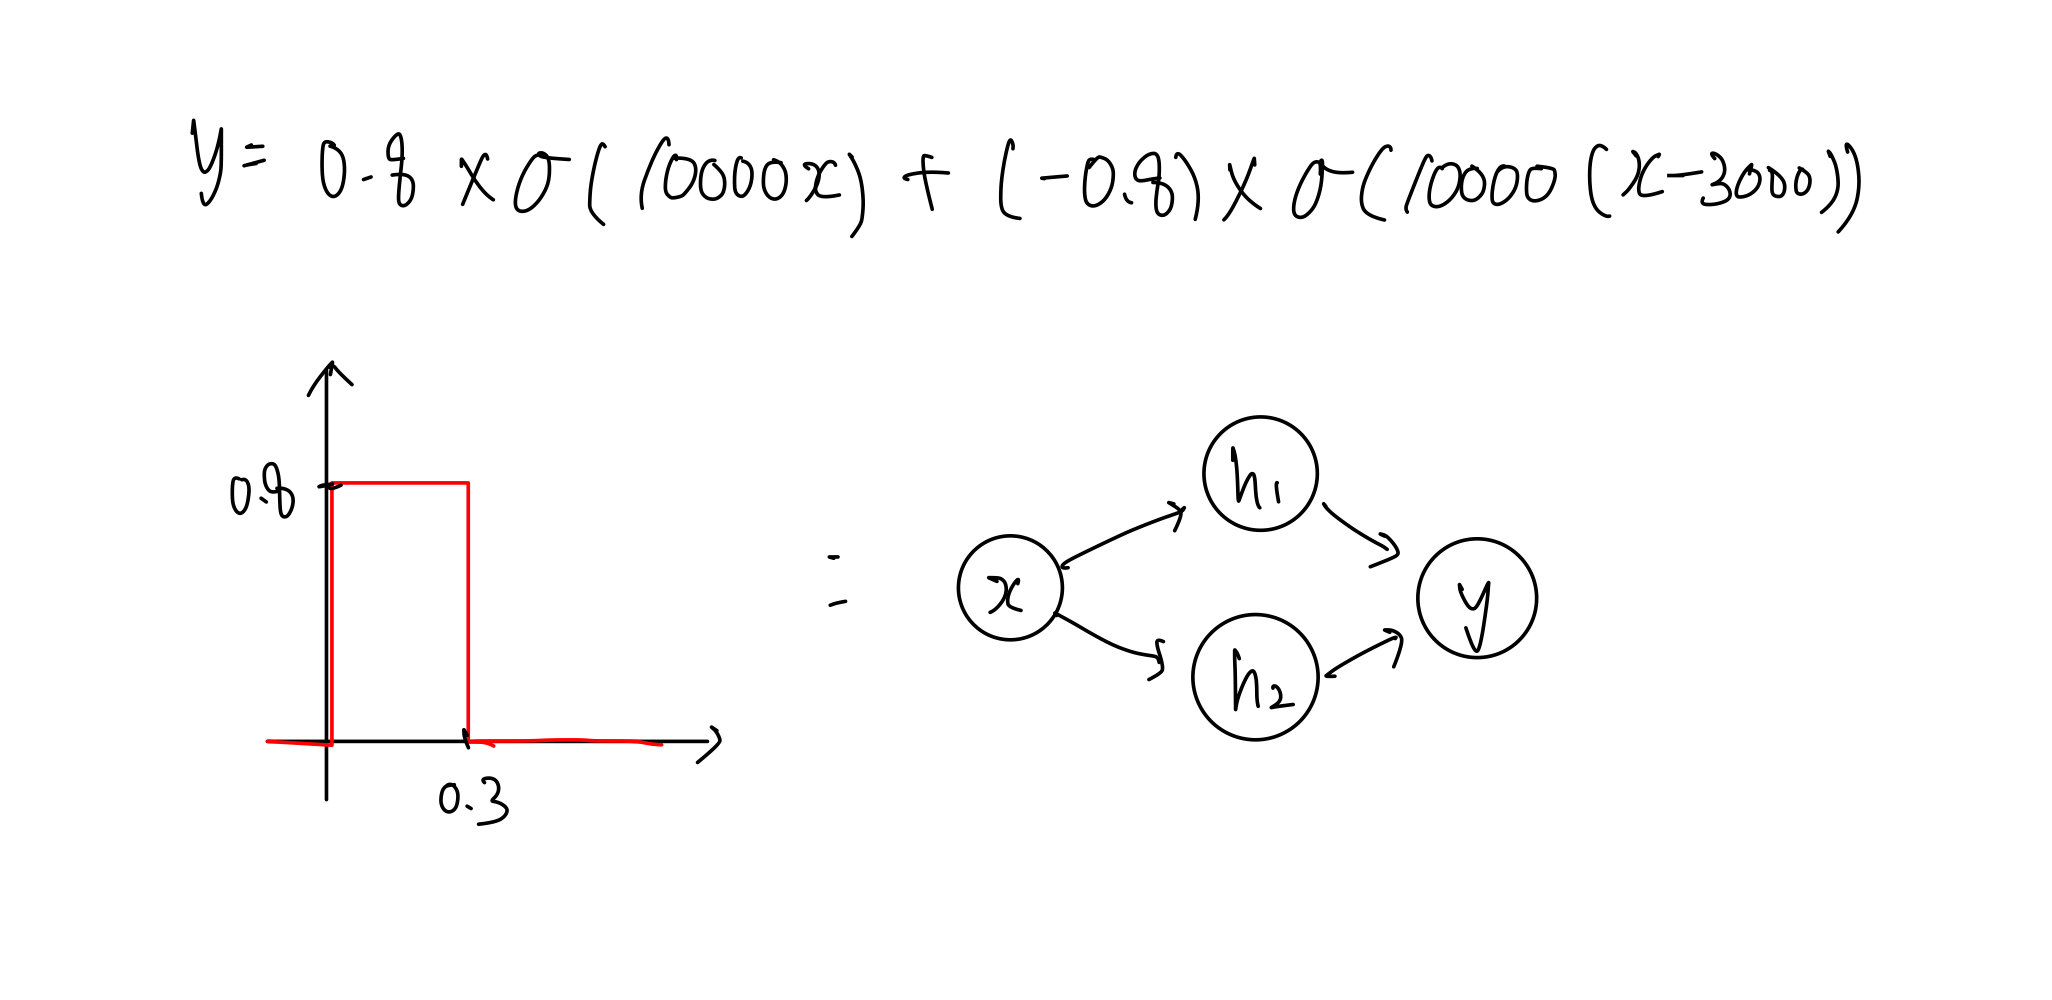 y = 0.8 × σ(10000x) + (-0.8) × σ(10000(x-3000))
0.8
0.3
=
x
h₁
h₂
y